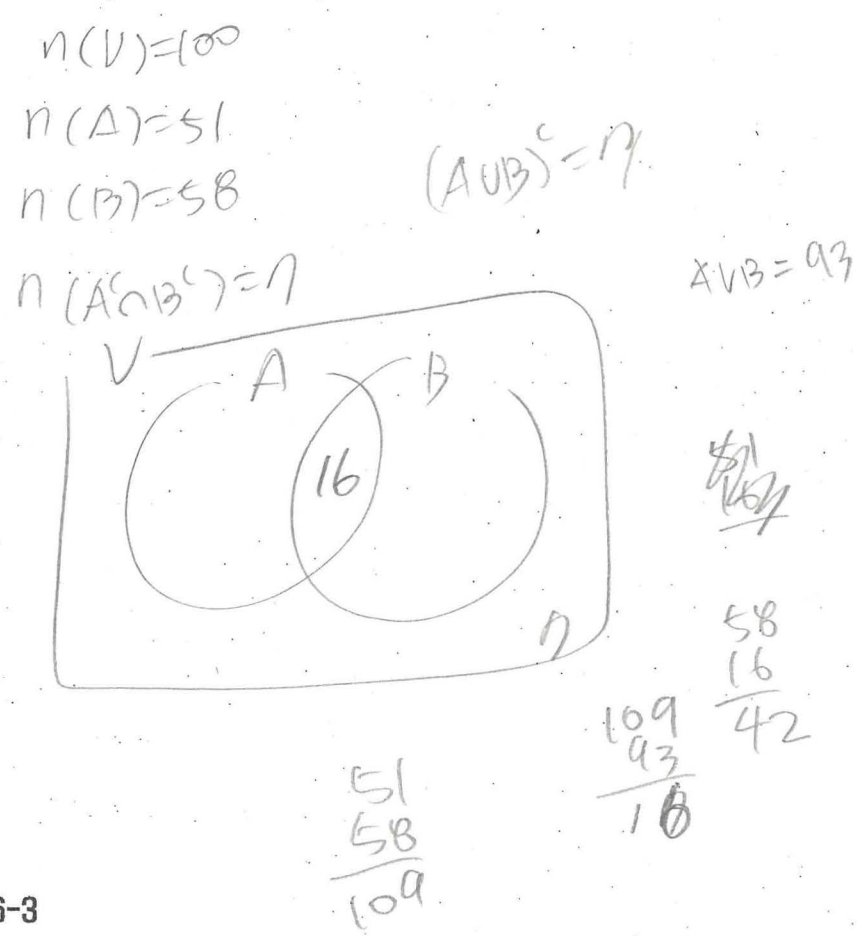 n(U)=100
n(A)=51
n(B)=58
(A∪B)ᶜ=7
n(Aᶜ∩Bᶜ)=7
A∪B=93
U
A
B
16
7
58
16
42
109
93
16
51
58
109
6-3